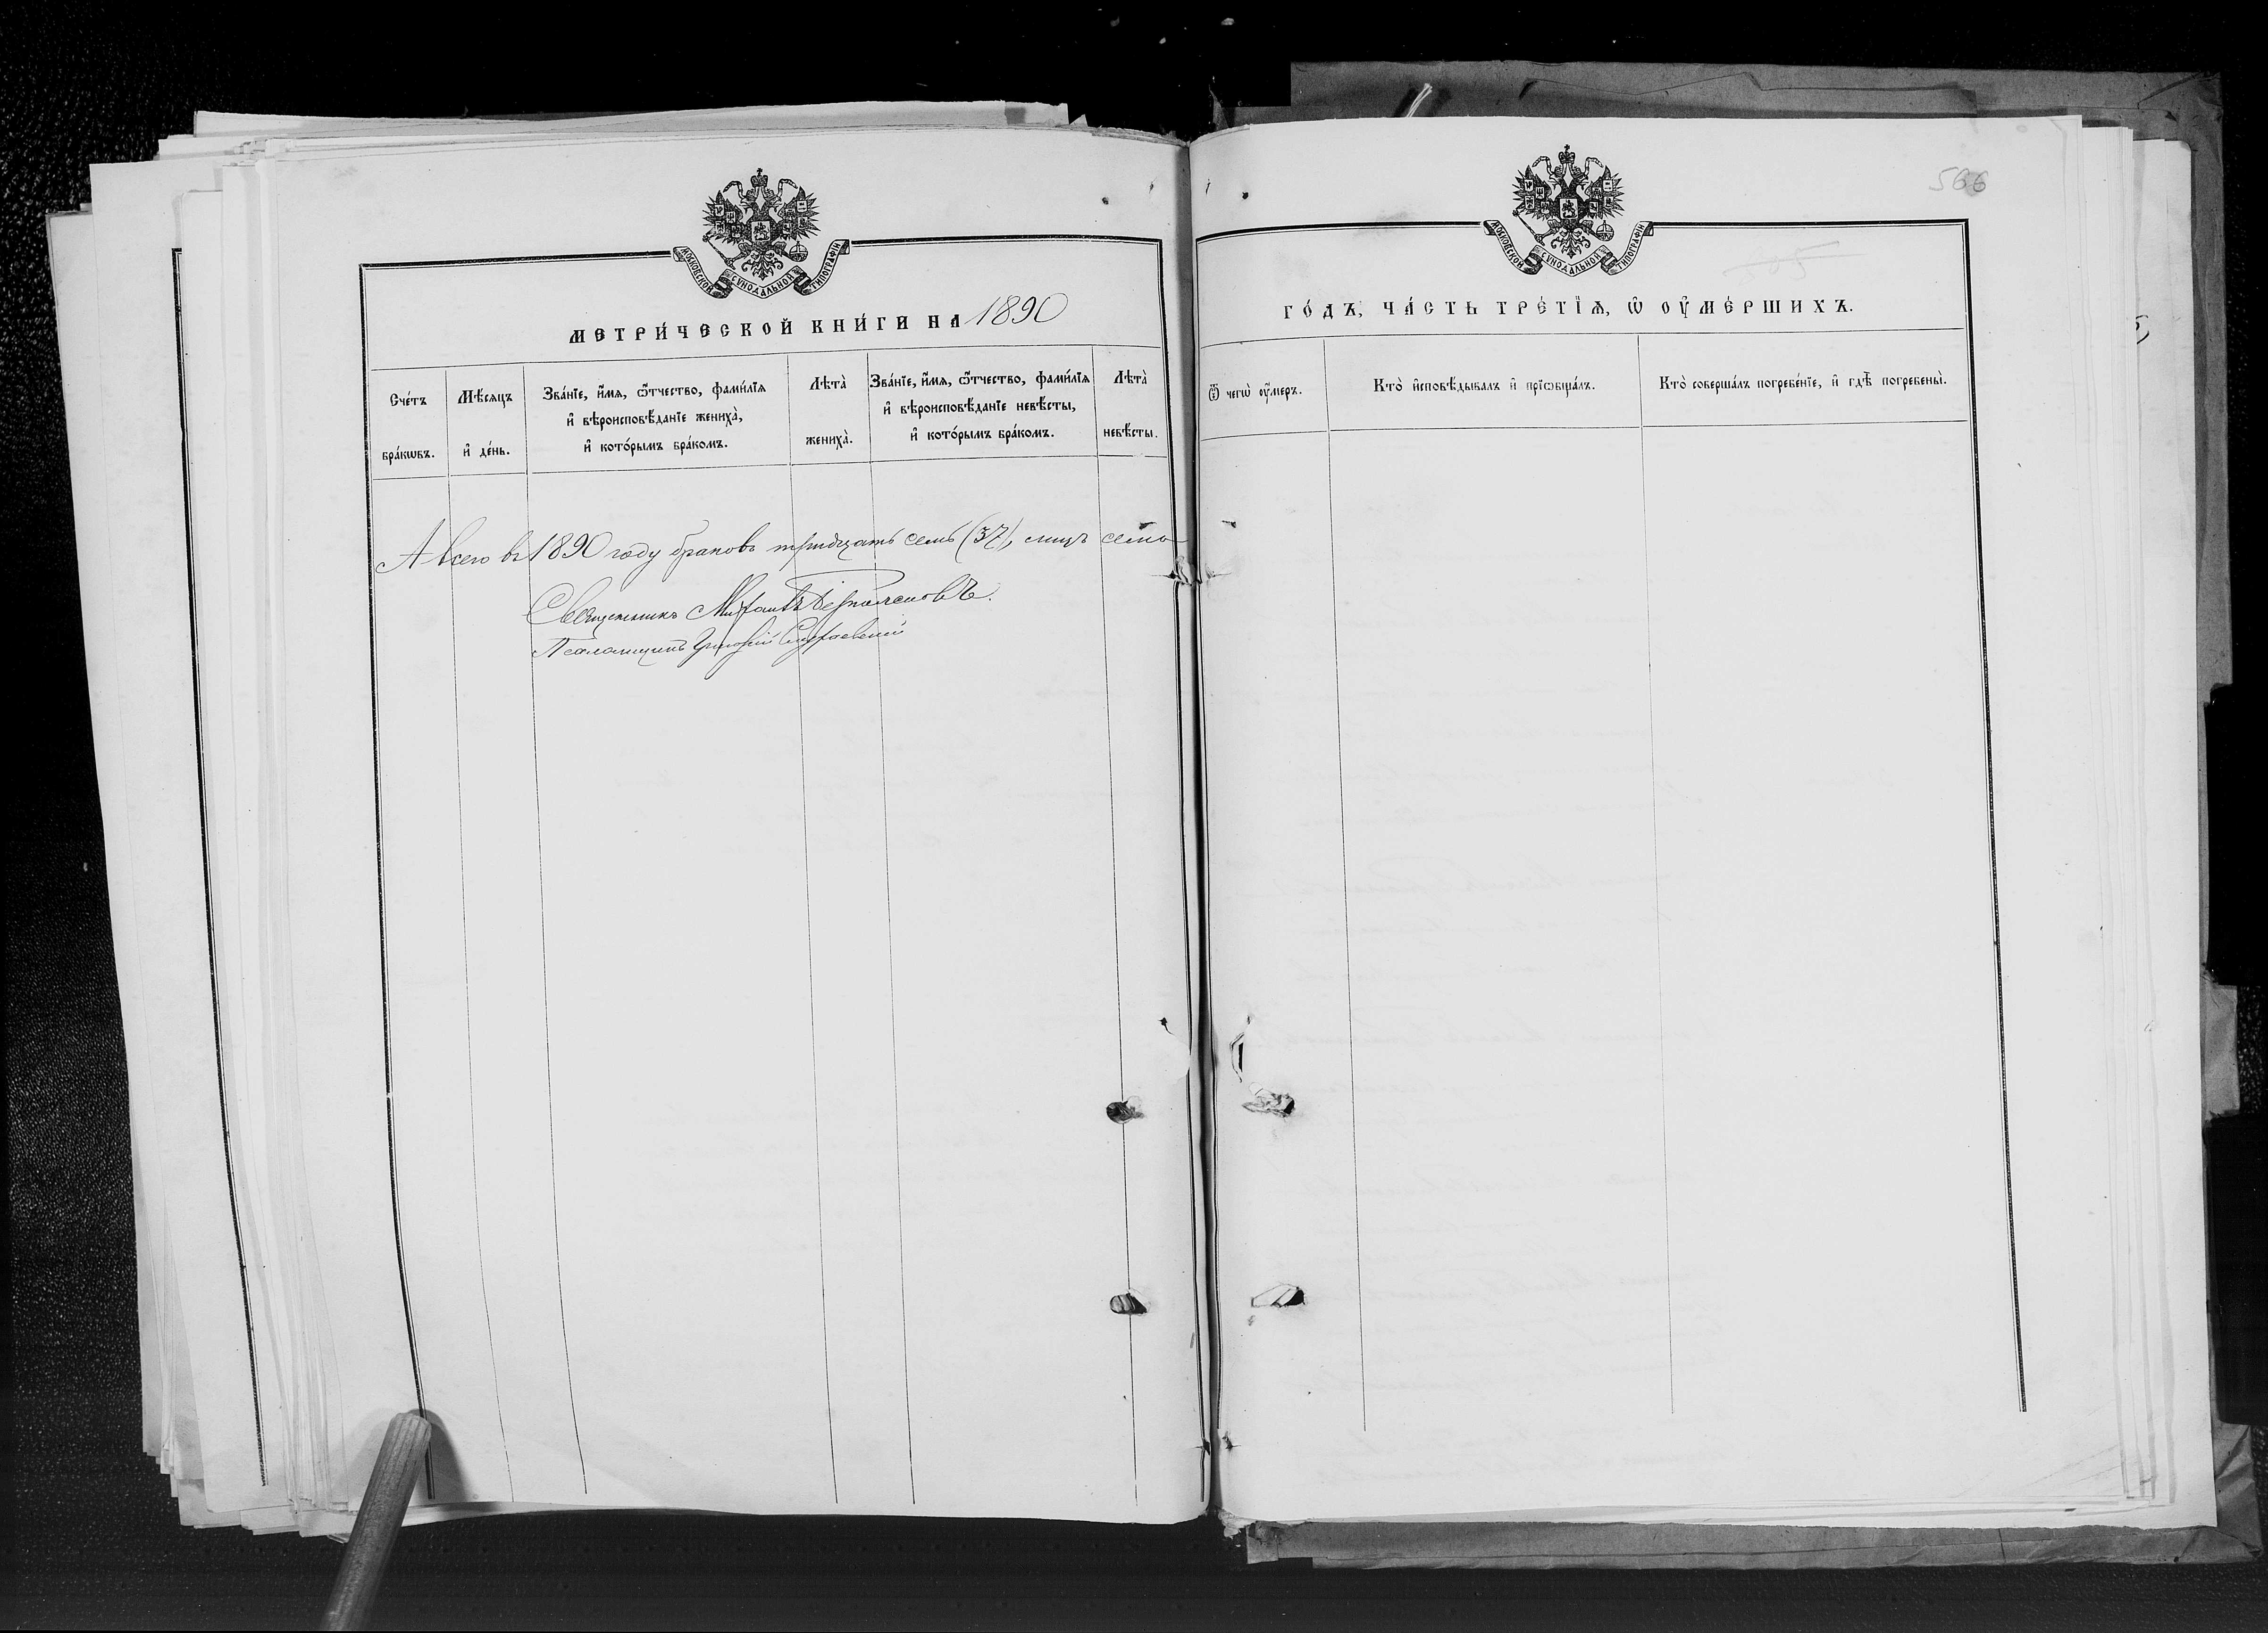 МОСКОВСКОЙ СѴНОДАЛЬНОЙ ТИПОГРАФІИ
МЕТРИ́ЧЕСКОЙ КНИ́ГИ НА 1890
Сче́тъ бра́кѡвъ.
Мѣ́сяцъ и҆ де́нь.
Зва́нїе, и҆́мѧ, ѻ҆́тчество, фами́лїѧ
и҆ вѣроисповѣ́данїе жениха̀,
и҆ кото́рымъ бра́комъ.
Лѣта̀ жениха̀.
Зва́нїе, и҆́мѧ, ѻ҆́тчество, фами́лїѧ
и҆ вѣроисповѣ́данїе невѣ́сты,
и҆ кото́рымъ бра́комъ.
Лѣта̀ невѣ́сты.
А всего въ 1890 году браковъ тридцать семь (37), лицъ семь
Священникъ Михаилъ
Псаломщикъ Григорій
566
МОСКОВСКОЙ СѴНОДАЛЬНОЙ ТИПОГРАФІИ
505
ГО́ДЪ, ЧА́СТЬ ТРЕ́ТЇѦ, Ѡ҆ ОУ҆МЕ́РШИХЪ.
Ѿ чегѡ̀ оу҆́меръ.
Кто̀ и҆сповѣ́дывалъ и҆ прїѡбща́лъ.
Кто̀ соверша́лъ погребе́нїе, и҆ гдѣ̀ погребены̀.